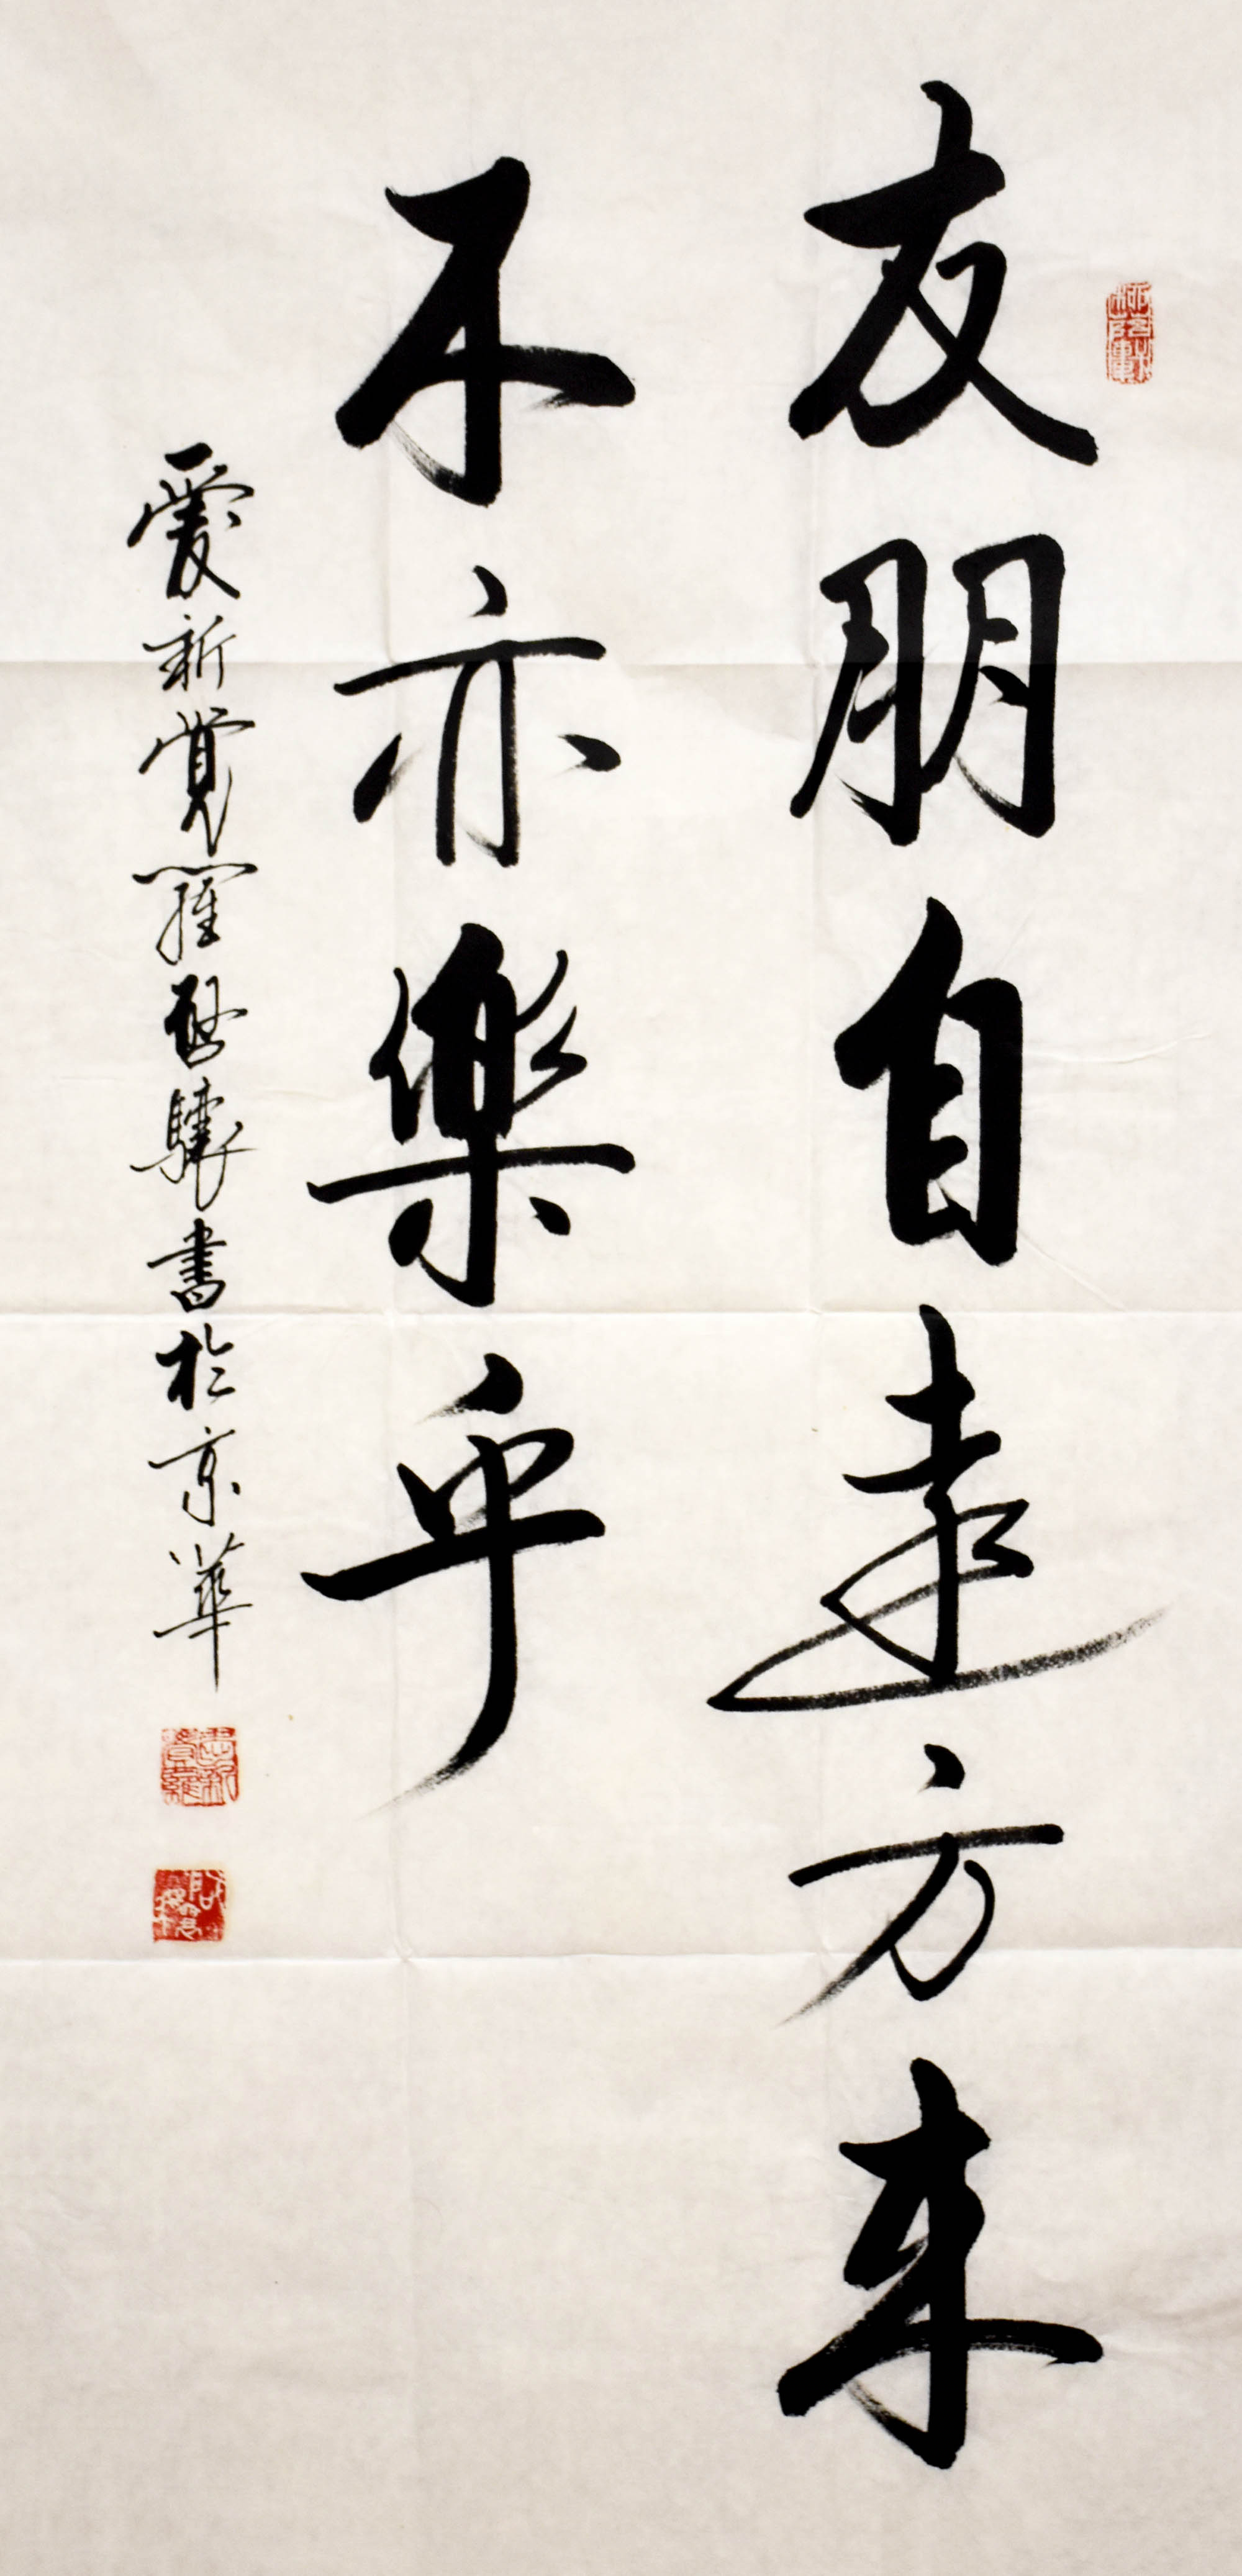 友朋自遠方来
不亦樂乎
愛新覺羅啟驤書於京華